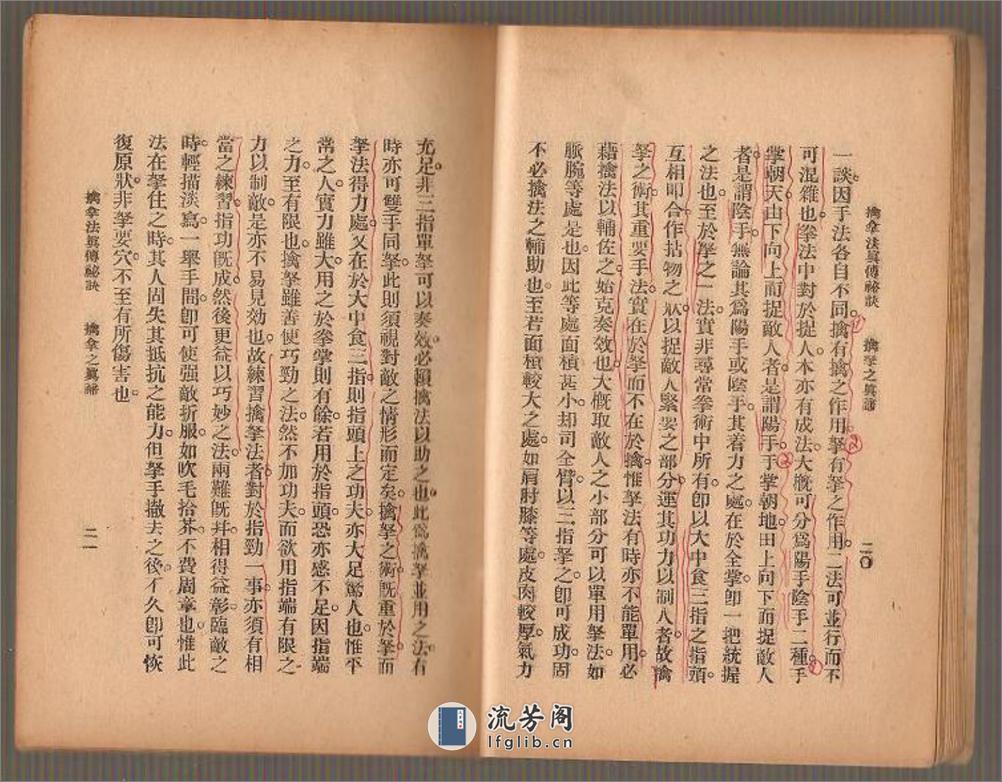 擒拿法眞傳秘訣　擒拏之眞諦　二〇
一談。因手法各自不同。擒有擒之作用。拏有拏之作用。二法可並行而不
可混雜也。拳法中對於捉人。本亦有成法。大槪可分爲陽手陰手二種。手
掌朝天。由下向上而捉敵人者。是謂陽手。手掌朝地。田上向下而捉敵人
者。是謂陰手。無論其爲陽手或陰手。其着力之處在於全掌。卽一把統握
之法也。至於拏之一法。實非尋常拳術中所有。卽以大中食三指之指頭。
互相叩合。作拈物之狀。以捉敵人緊要之部分。運其功力以制人者。故擒
拏之術。其重要手法。實在於拏而不在於擒。惟拏法有時亦不能單用。必
藉擒法以輔佐之。始克奏效也。大槪取敵人之小部分可以單用拏法。如
脈腕等處是也。因此等處面積甚小。却司全臂。以三指拏之。卽可成功。固
不必擒法之輔助也。至若面積較大之處。如肩肘膝等處。皮肉較厚。氣力
充足。非三指單拏可以奏效。必賴擒法以助之也。此爲擒拏並用之法。有
時亦可雙手同拏。此則須視對敵之情形而定矣。擒拏之術。旣重於拏。而
拏法得力處。又在於大中食三指。則指頭上之功夫。亦大足驚人也。惟平
常之人。實力雖大。用之於拳掌則有餘。若用於指頭。恐亦感不足。因指端
之力。至有限也。擒拏雖善使巧勁之法。然不加功夫。而欲用指端有限之
力以制敵。是亦不易見効也。故練習擒拏法者。對於指勁一事。亦須有相
當之練習。指功旣成。然後更益以巧妙之法。兩難旣幷。相得益彰。臨敵之
時。輕描淡寫。一舉手間。卽可使强敵折服。如吹毛拾芥。不費周章也。惟此
法在拏住之時。其人固失其抵抗之能力。但拏手撤去之後。不久卽可恢
復原狀。非拏要穴。不至有所傷害也。
擒拿法眞傳秘訣　擒拿之眞諦　二一
流芳阁
lfglib.cn